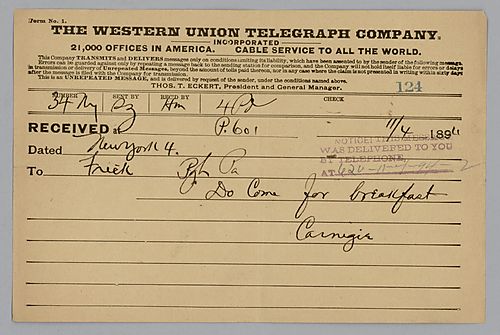 Form No. 1.
THE WESTERN UNION TELEGRAPH COMPANY.
INCORPORATED
21,000 OFFICES IN AMERICA. CABLE SERVICE TO ALL THE WORLD.
This Company TRANSMITS and DELIVERS messages only on conditions limiting its liability, which have been assented to by the sender of the following message.
Errors can be guarded against only by repeating a message back to the sending station for comparison, and the Company will not hold itself liable for errors or delays
in transmission or delivery of Unrepeated Messages, beyond the amount of tolls paid thereon, nor in any case where the claim is not presented in writing within sixty days
after the message is filed with the Company for transmission.
This is an UNREPEATED MESSAGE, and is delivered by request of the sender, under the conditions named above.
THOS. T. ECKERT, President and General Manager.
124
NUMBER SENT BY REC'D BY CHECK
34 Ny Hm 4 Pd
RECEIVED at P.601 11/4 189
Dated New York 4.
NOTICE
WAS DELIVERED TO YOU
BY TELEPHONE,
AT
To Frick Pgh Pa
Do Come for breakfast
Carnegie